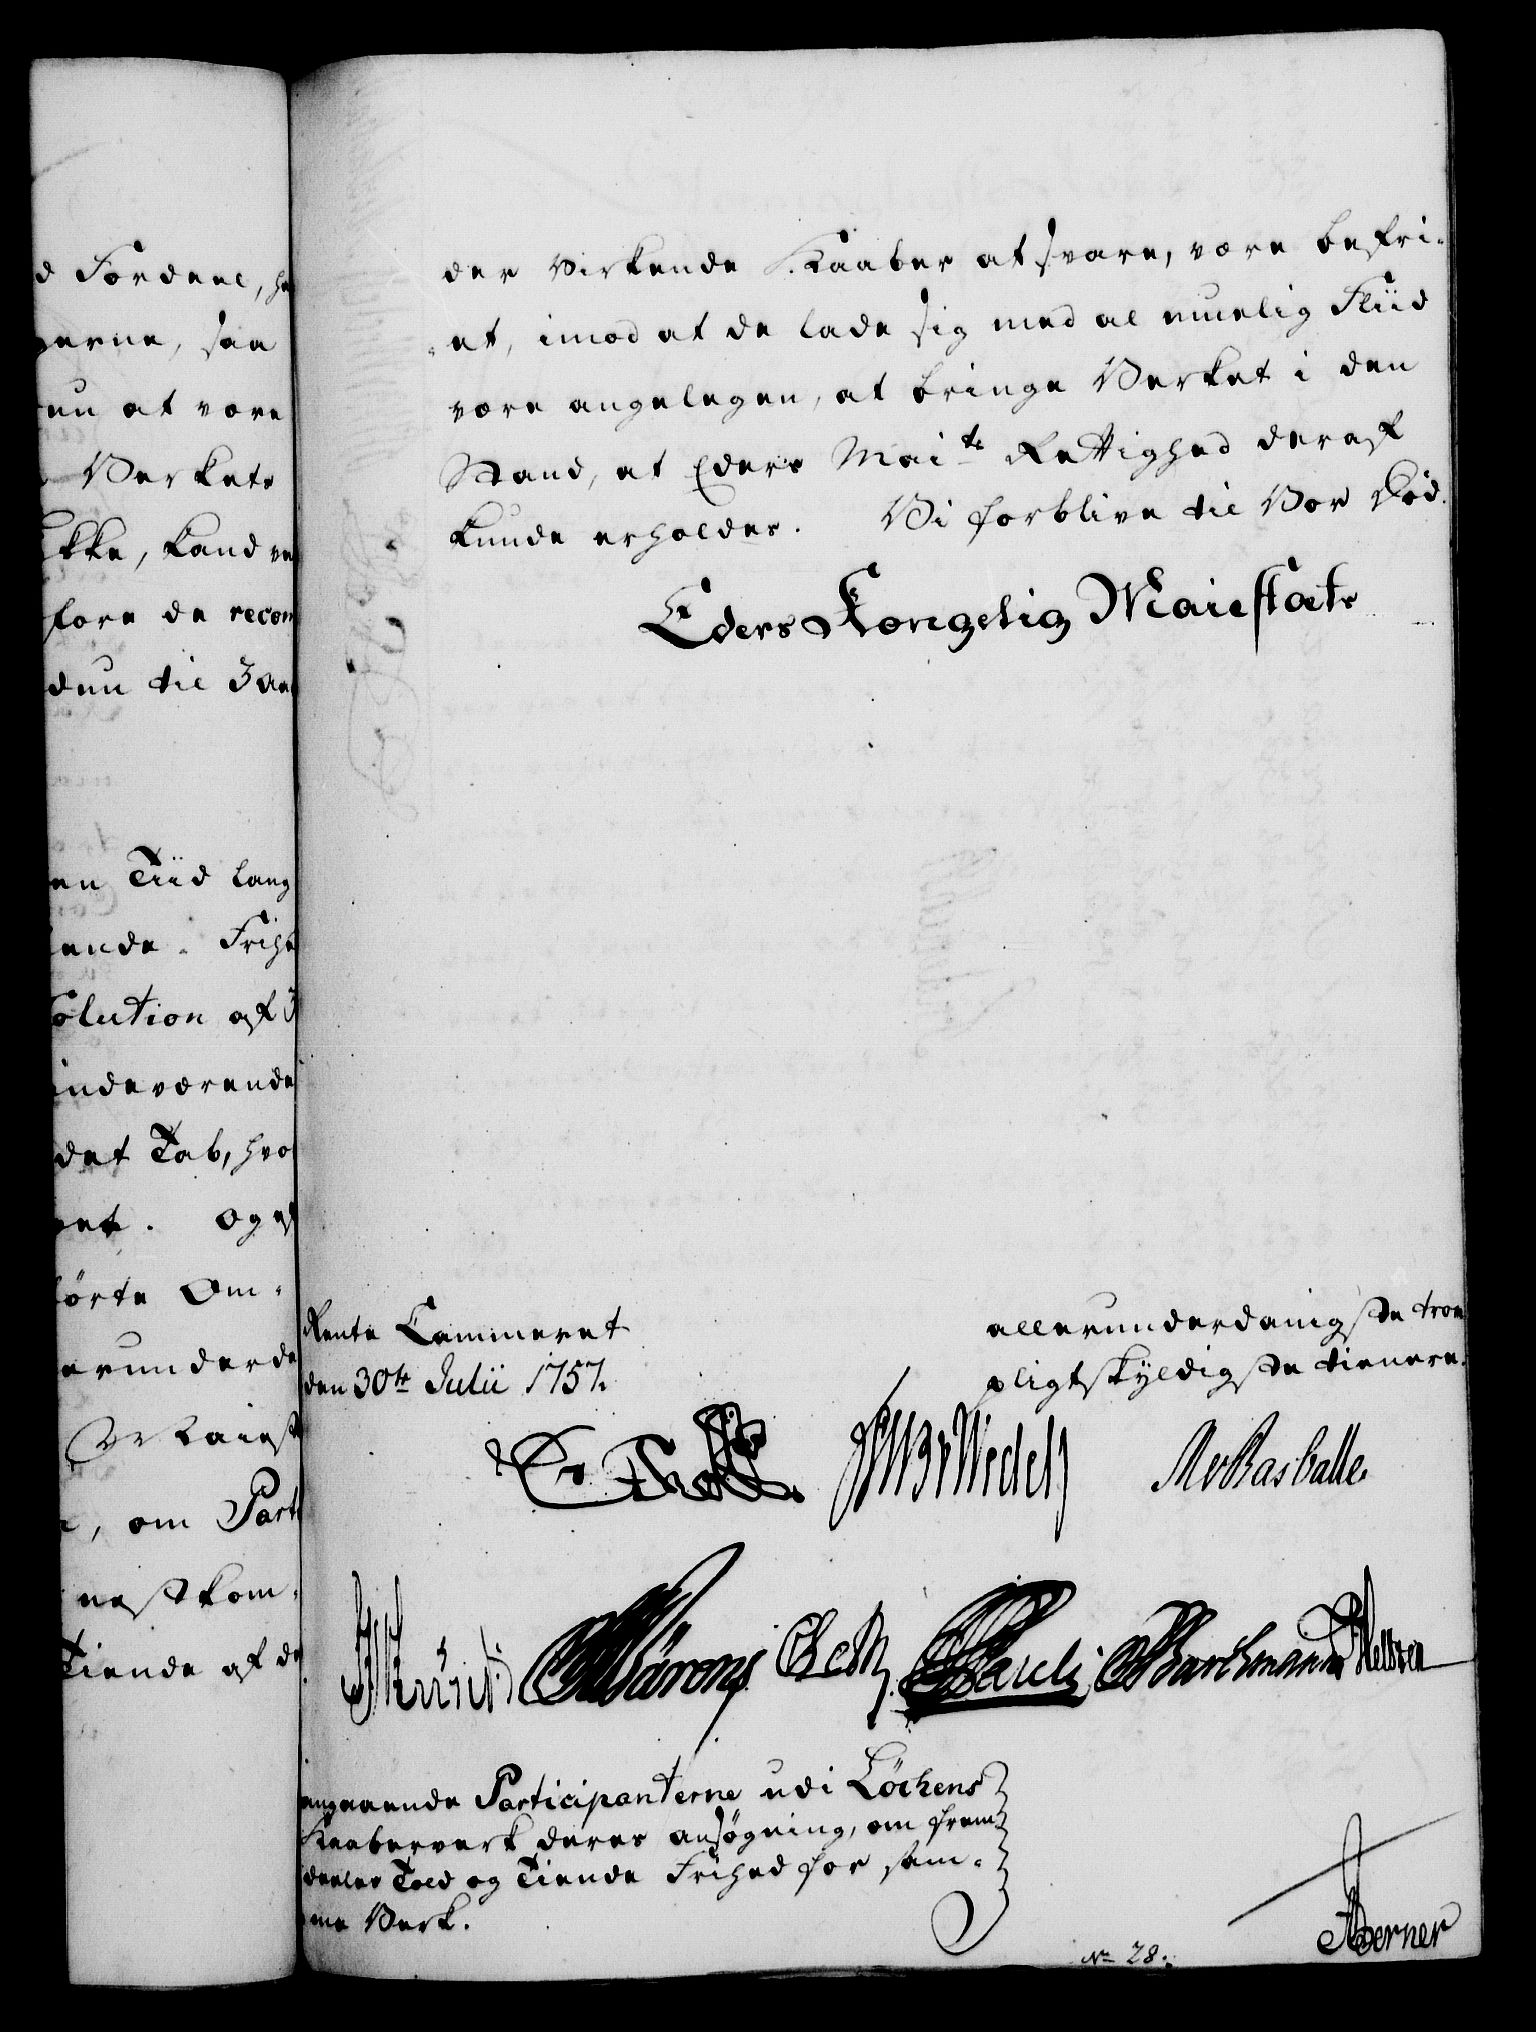 d Fordeel, he
gerne, saa
un at være
Verkets
ikke, kand ve
fore de recom
dnu til 3 Aa
en Tiid lang
iende Frihe
solution af 3
indeværende
det Tab, hvo
et. Og
førte Om-
erunderda
om Parti
næstkom-
Tiende af de
der virkende Kaaber at svare, være befri-
et, imod at de lade sig med al muelig Fliid
være angelegen, at bringe Verket i den
Stand, at Eders Maits Rettighed deraf
kunde erholdes. Vi forblive til Vor Död.
Eders Kongelig Maiestæts
Rente Cammeret
den 30te Julii 1757.
allerunderdanigste troe
pligtskyldigste tienere.
O Thott
Wedell
M v Basballe.
Künst
Bårens
Beck
Pauli
Barchmann
Angaaende Participanterne udi Löchens
Kaaberverk deres ansøgning, om frem-
deeles Told og Tiende Frihed for sam-
me Verk.
No 28.
Berner